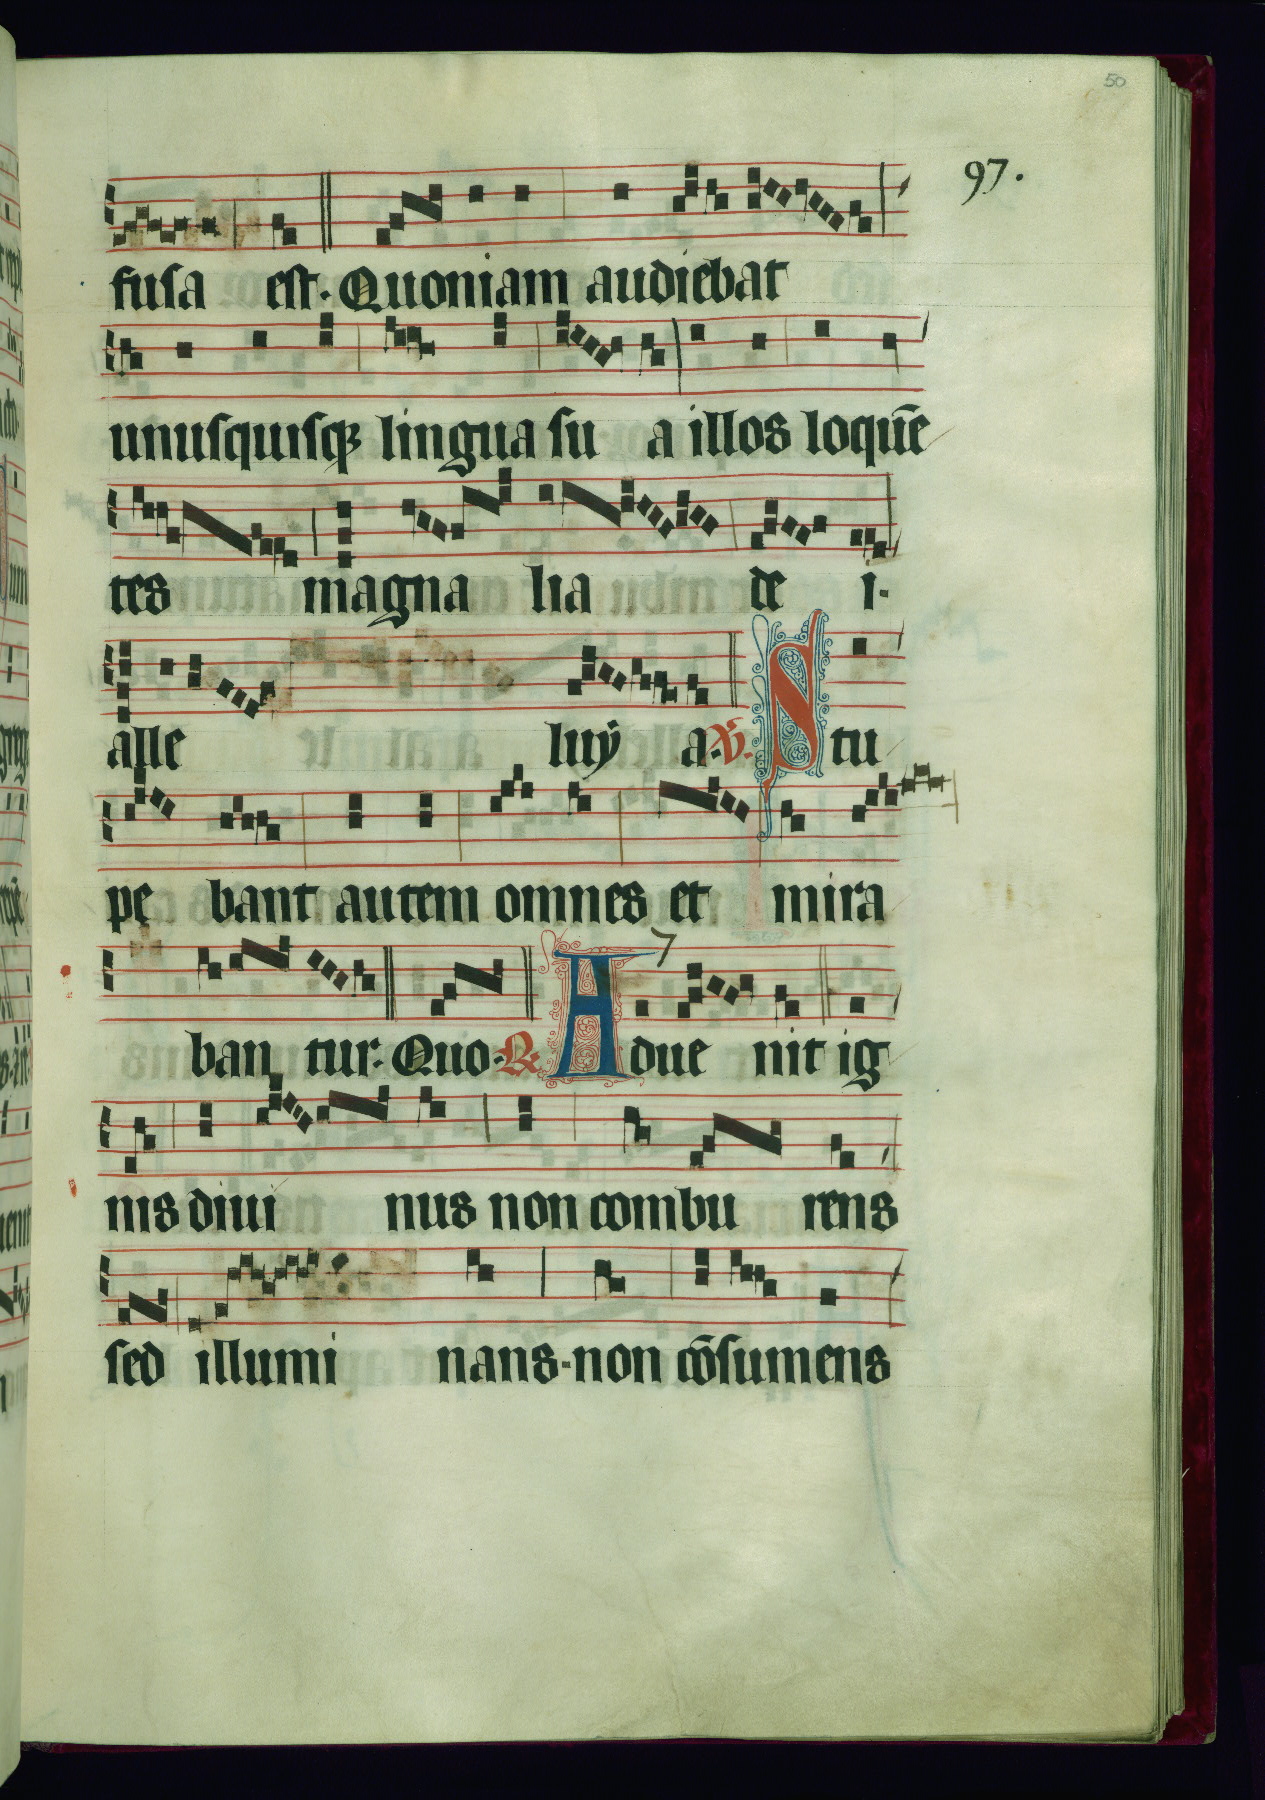 50
97.
fusa est. Quoniam audiebat
unusquisqȝ lingua su a illos loquē
tes magna lia de i.
alle luÿ a. V. Stu
pe bant autem omnes et mira
ban tur. Quo. R. Adue nit ig
7
nis diui nus non combu rens
sed illumi nans. non cōsumens